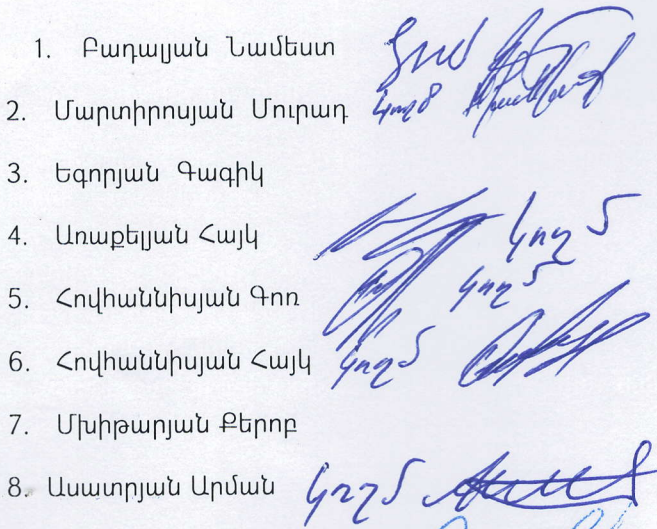 1. Բադալյան Նամեստ
2. Մարտիրոսյան Մուրադ կողմ
3. Եգորյան Գագիկ
4. Առաքելյան Հայկ կողմ
5. Հովհաննիսյան Գոռ կողմ
6. Հովհաննիսյան Հայկ կողմ
7. Մխիթարյան Քերոբ
8. Ասատրյան Արման կողմ